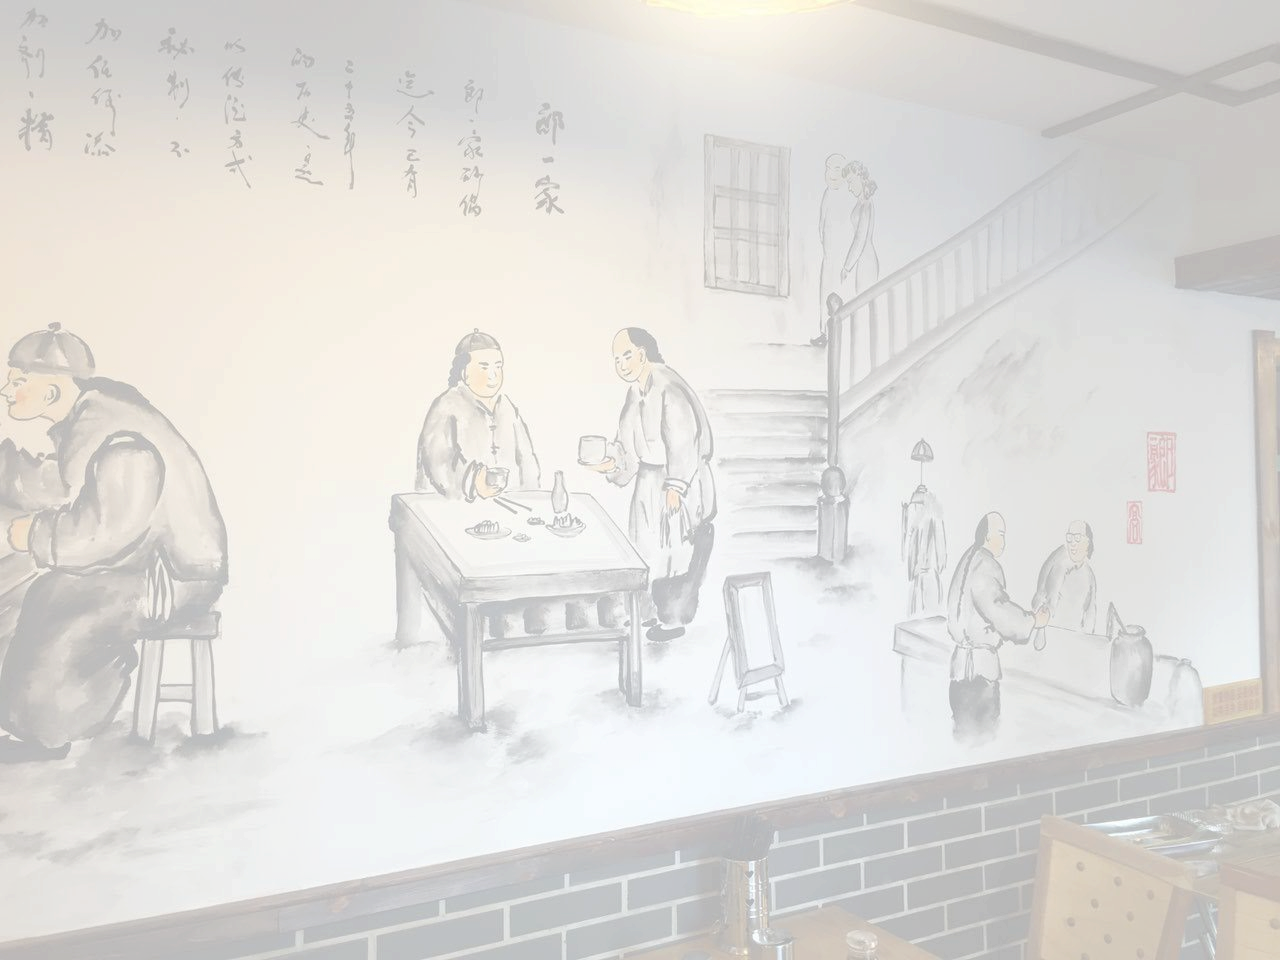 郎一家
郎一家砂锅
迄今已有
二十多年
的历史,是
以传统方式
秘制,不
加任何添
加剂、精